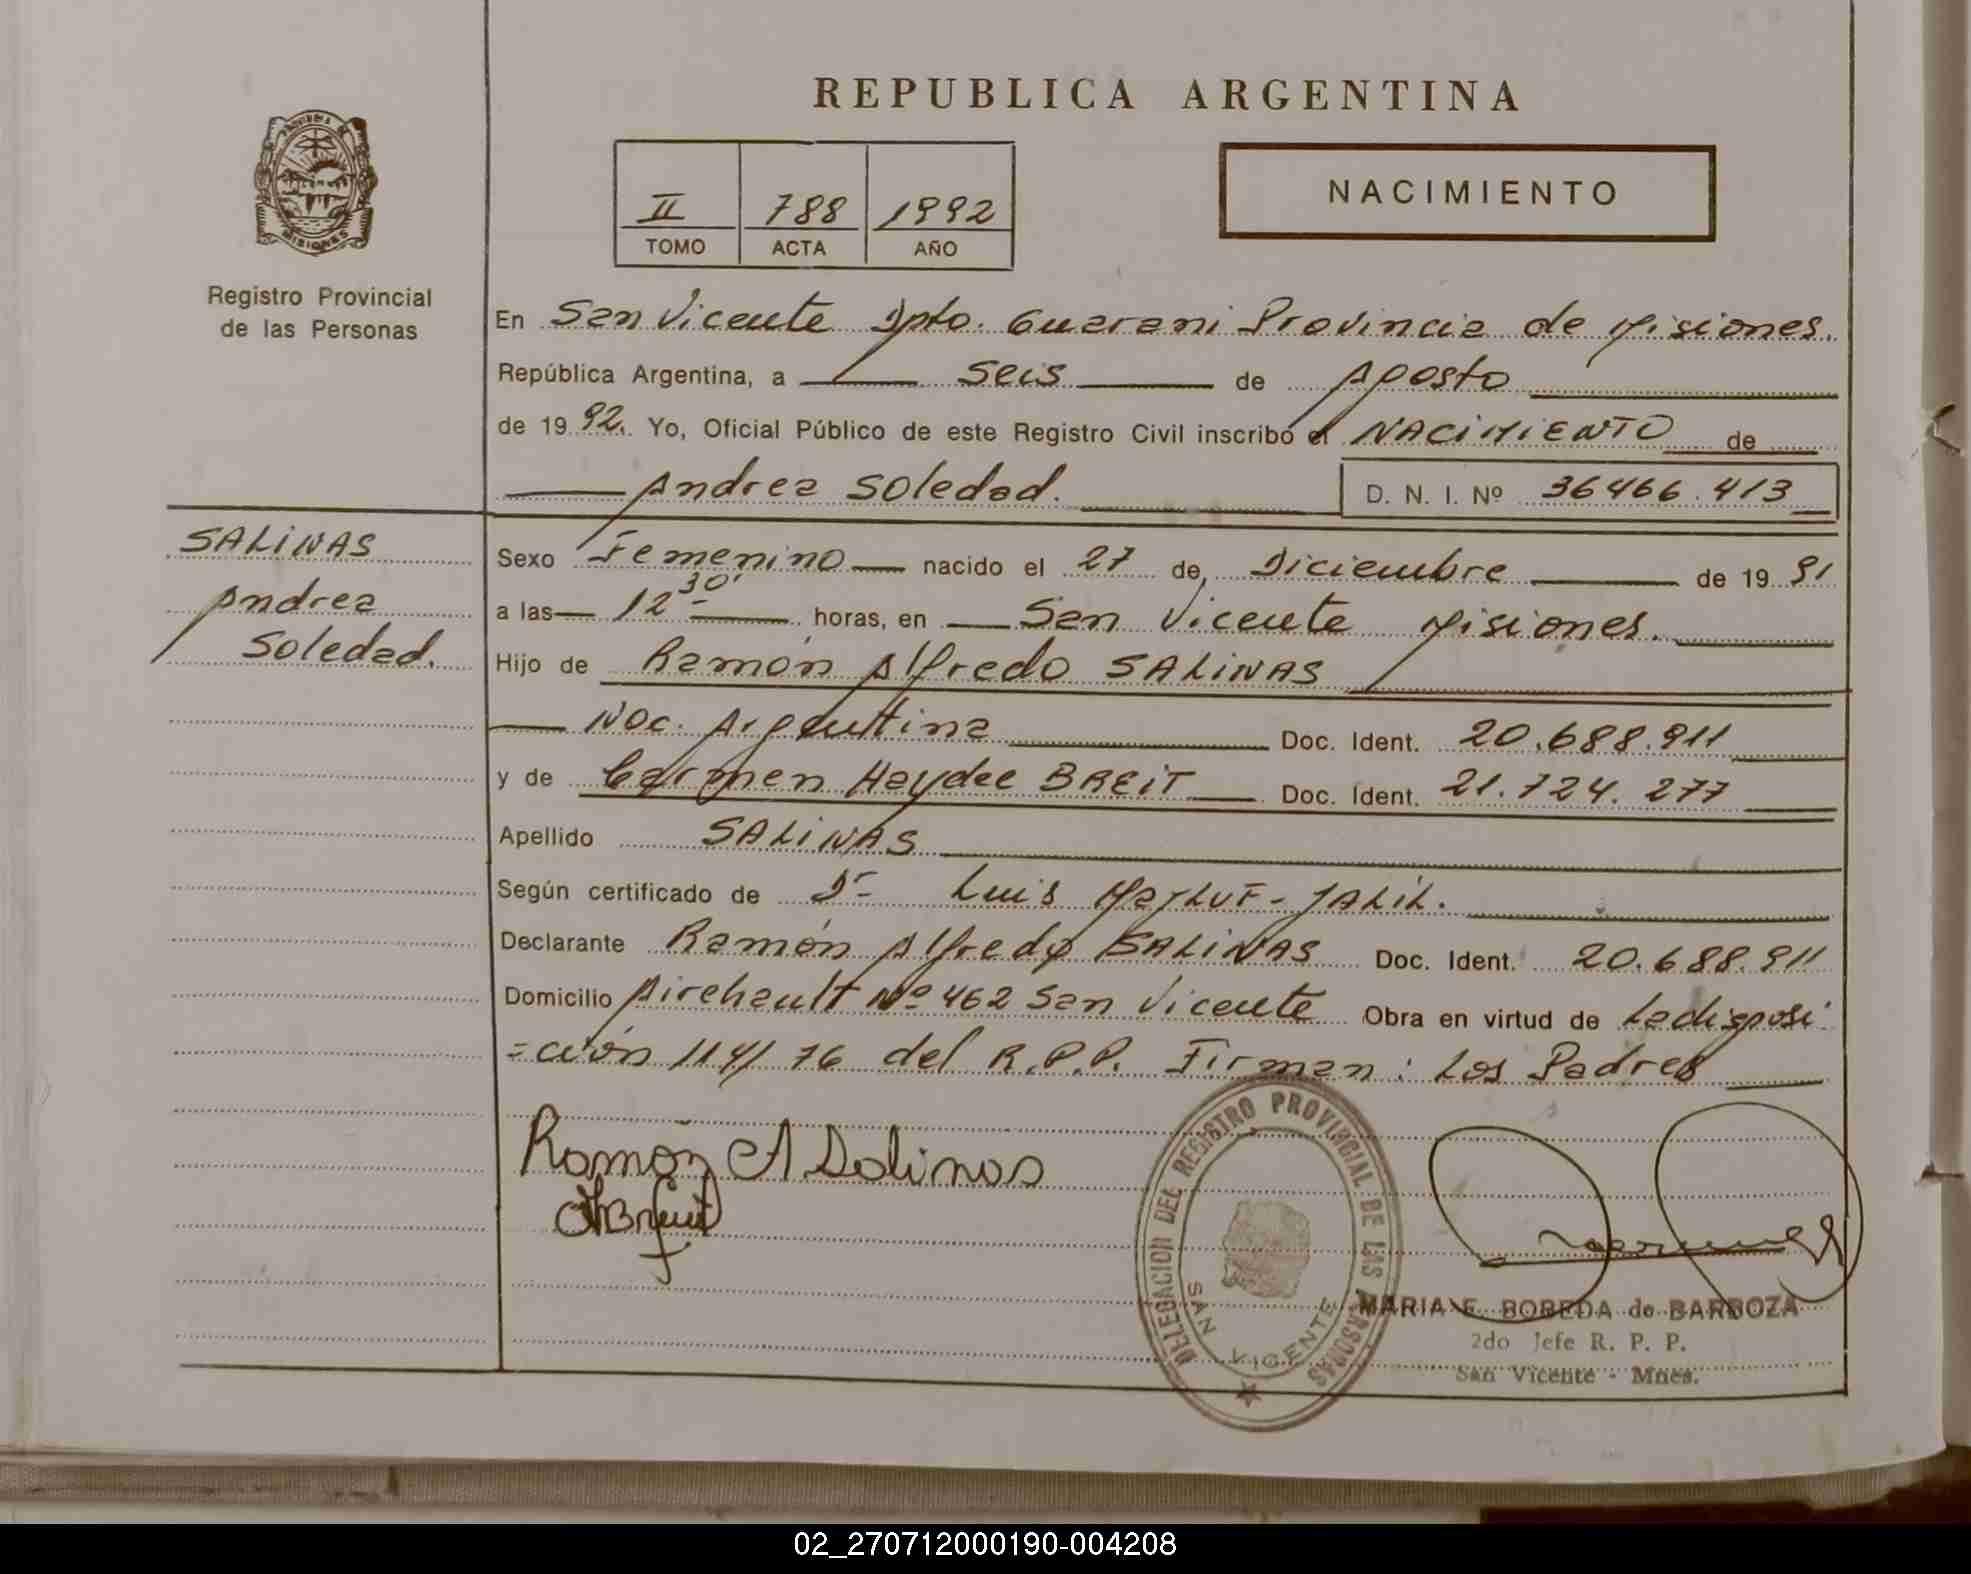 REPUBLICA ARGENTINA
PROVINCIA DE
MISIONES
Registro Provincial
de las Personas
II 788 1992
TOMO ACTA AÑO
NACIMIENTO
En San Vicente Dpto. Guarani Provincia de Misiones.
República Argentina, a seis de Agosto
de 1992. Yo, Oficial Público de este Registro Civil inscribo el NACIMIENTO de
Andrea Soledad. D. N. I. Nº 36466.413
SALINAS
Andrea
Soledad.
Sexo Femenino nacido el 27 de Diciembre de 1991
a las 12 30' horas, en San Vicente Misiones.
Hijo de Ramón Alfredo SALINAS
Nac. Argentina Doc. Ident. 20.688.911
y de Carmen Haydee BREIT Doc. Ident. 21.724.277
Apellido SALINAS
Según certificado de Dr Luis MayLUF-JALIL.
Declarante Ramón Alfredo SALINAS Doc. Ident. 20.688.911
Domicilio Nº 462 San Vicente Obra en virtud de La disposi
=ción 114/76 del R.P.P. Firman: Los Padres
Ramón A Salinas
DELEGACION DEL REGISTRO PROVINCIAL DE LAS PERSONAS
SAN VICENTE
MARIA E. BOBEDA de BARBOZA
2do Jefe R. P. P.
San Vicente - Mnes.
02_270712000190-004208